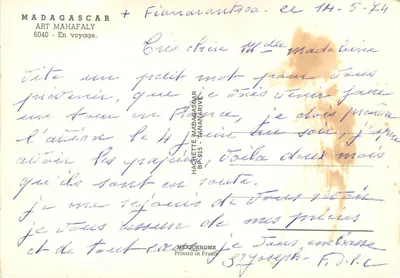 MADAGASCAR
ART MAHAFALY
6040 - En voyage.
+ Fianarantsoa ce 14-5-74
Très chère Mlle Madeleine
Vite un petit mot pour vous
prévenir, que je vais venir faire
un tour en France, je dois prendre
l'avion le 4 juin au soir, j'espère
avoir les papiers, voilà deux mois
qu'ils sont en route.
je me réjouis de vous revoir
je vous assure de mes prières
et de tout cœur je vous embrasse
Sr Joseph
HACHETTE MADAGASCAR
BP 915 - TANANARIVE
MEXICHROME
Printed in France